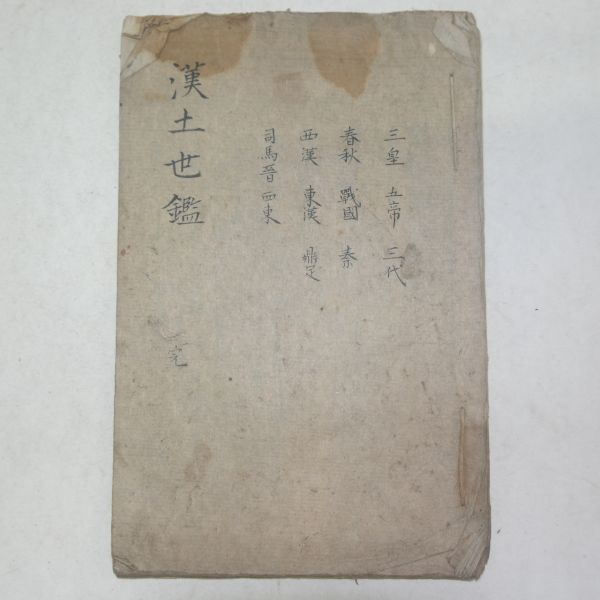 三皇 五帝 三代
春秋 戰國 秦
西漢 東漢 鼎足
司馬晉 西東
漢土世鑑
完